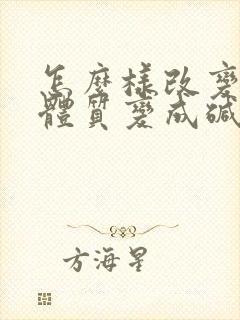 怎麼樣改變
體質變成鹼
方海星